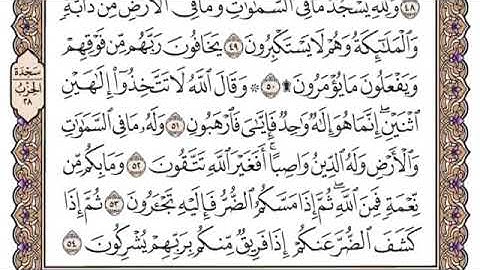 ٤٨ وَلِلَّهِ يَسْجُدُ مَا فِي السَّمَٰوَٰتِ وَمَا فِي الْأَرْضِ مِن دَابَّةٍ
وَالْمَلَٰٓئِكَةُ وَهُمْ لَا يَسْتَكْبِرُونَ ٤٩ يَخَافُونَ رَبَّهُم مِّن فَوْقِهِمْ
وَيَفْعَلُونَ مَا يُؤْمَرُونَ ۩ ٥٠ ۞ وَقَالَ اللَّهُ لَا تَتَّخِذُوٓا۟ إِلَٰهَيْنِ
اثْنَيْنِ ۖ إِنَّمَا هُوَ إِلَٰهٌ وَٰحِدٌ فَإِيَّٰيَ فَارْهَبُونِ ٥١ وَلَهُ مَا فِي السَّمَٰوَٰتِ
وَالْأَرْضِ وَلَهُ الدِّينُ وَاصِبًا ۚ أَفَغَيْرَ اللَّهِ تَتَّقُونَ ٥٢ وَمَا بِكُم مِّن
نِّعْمَةٍ فَمِنَ اللَّهِ ۖ ثُمَّ إِذَا مَسَّكُمُ الضُّرُّ فَإِلَيْهِ تَجْـَٔرُونَ ٥٣ ثُمَّ إِذَا
كَشَفَ الضُّرَّ عَنكُمْ إِذَا فَرِيقٌ مِّنكُم بِرَبِّهِمْ يُشْرِكُونَ ٥٤
سَجْدَة
الحِزْب
٢٨